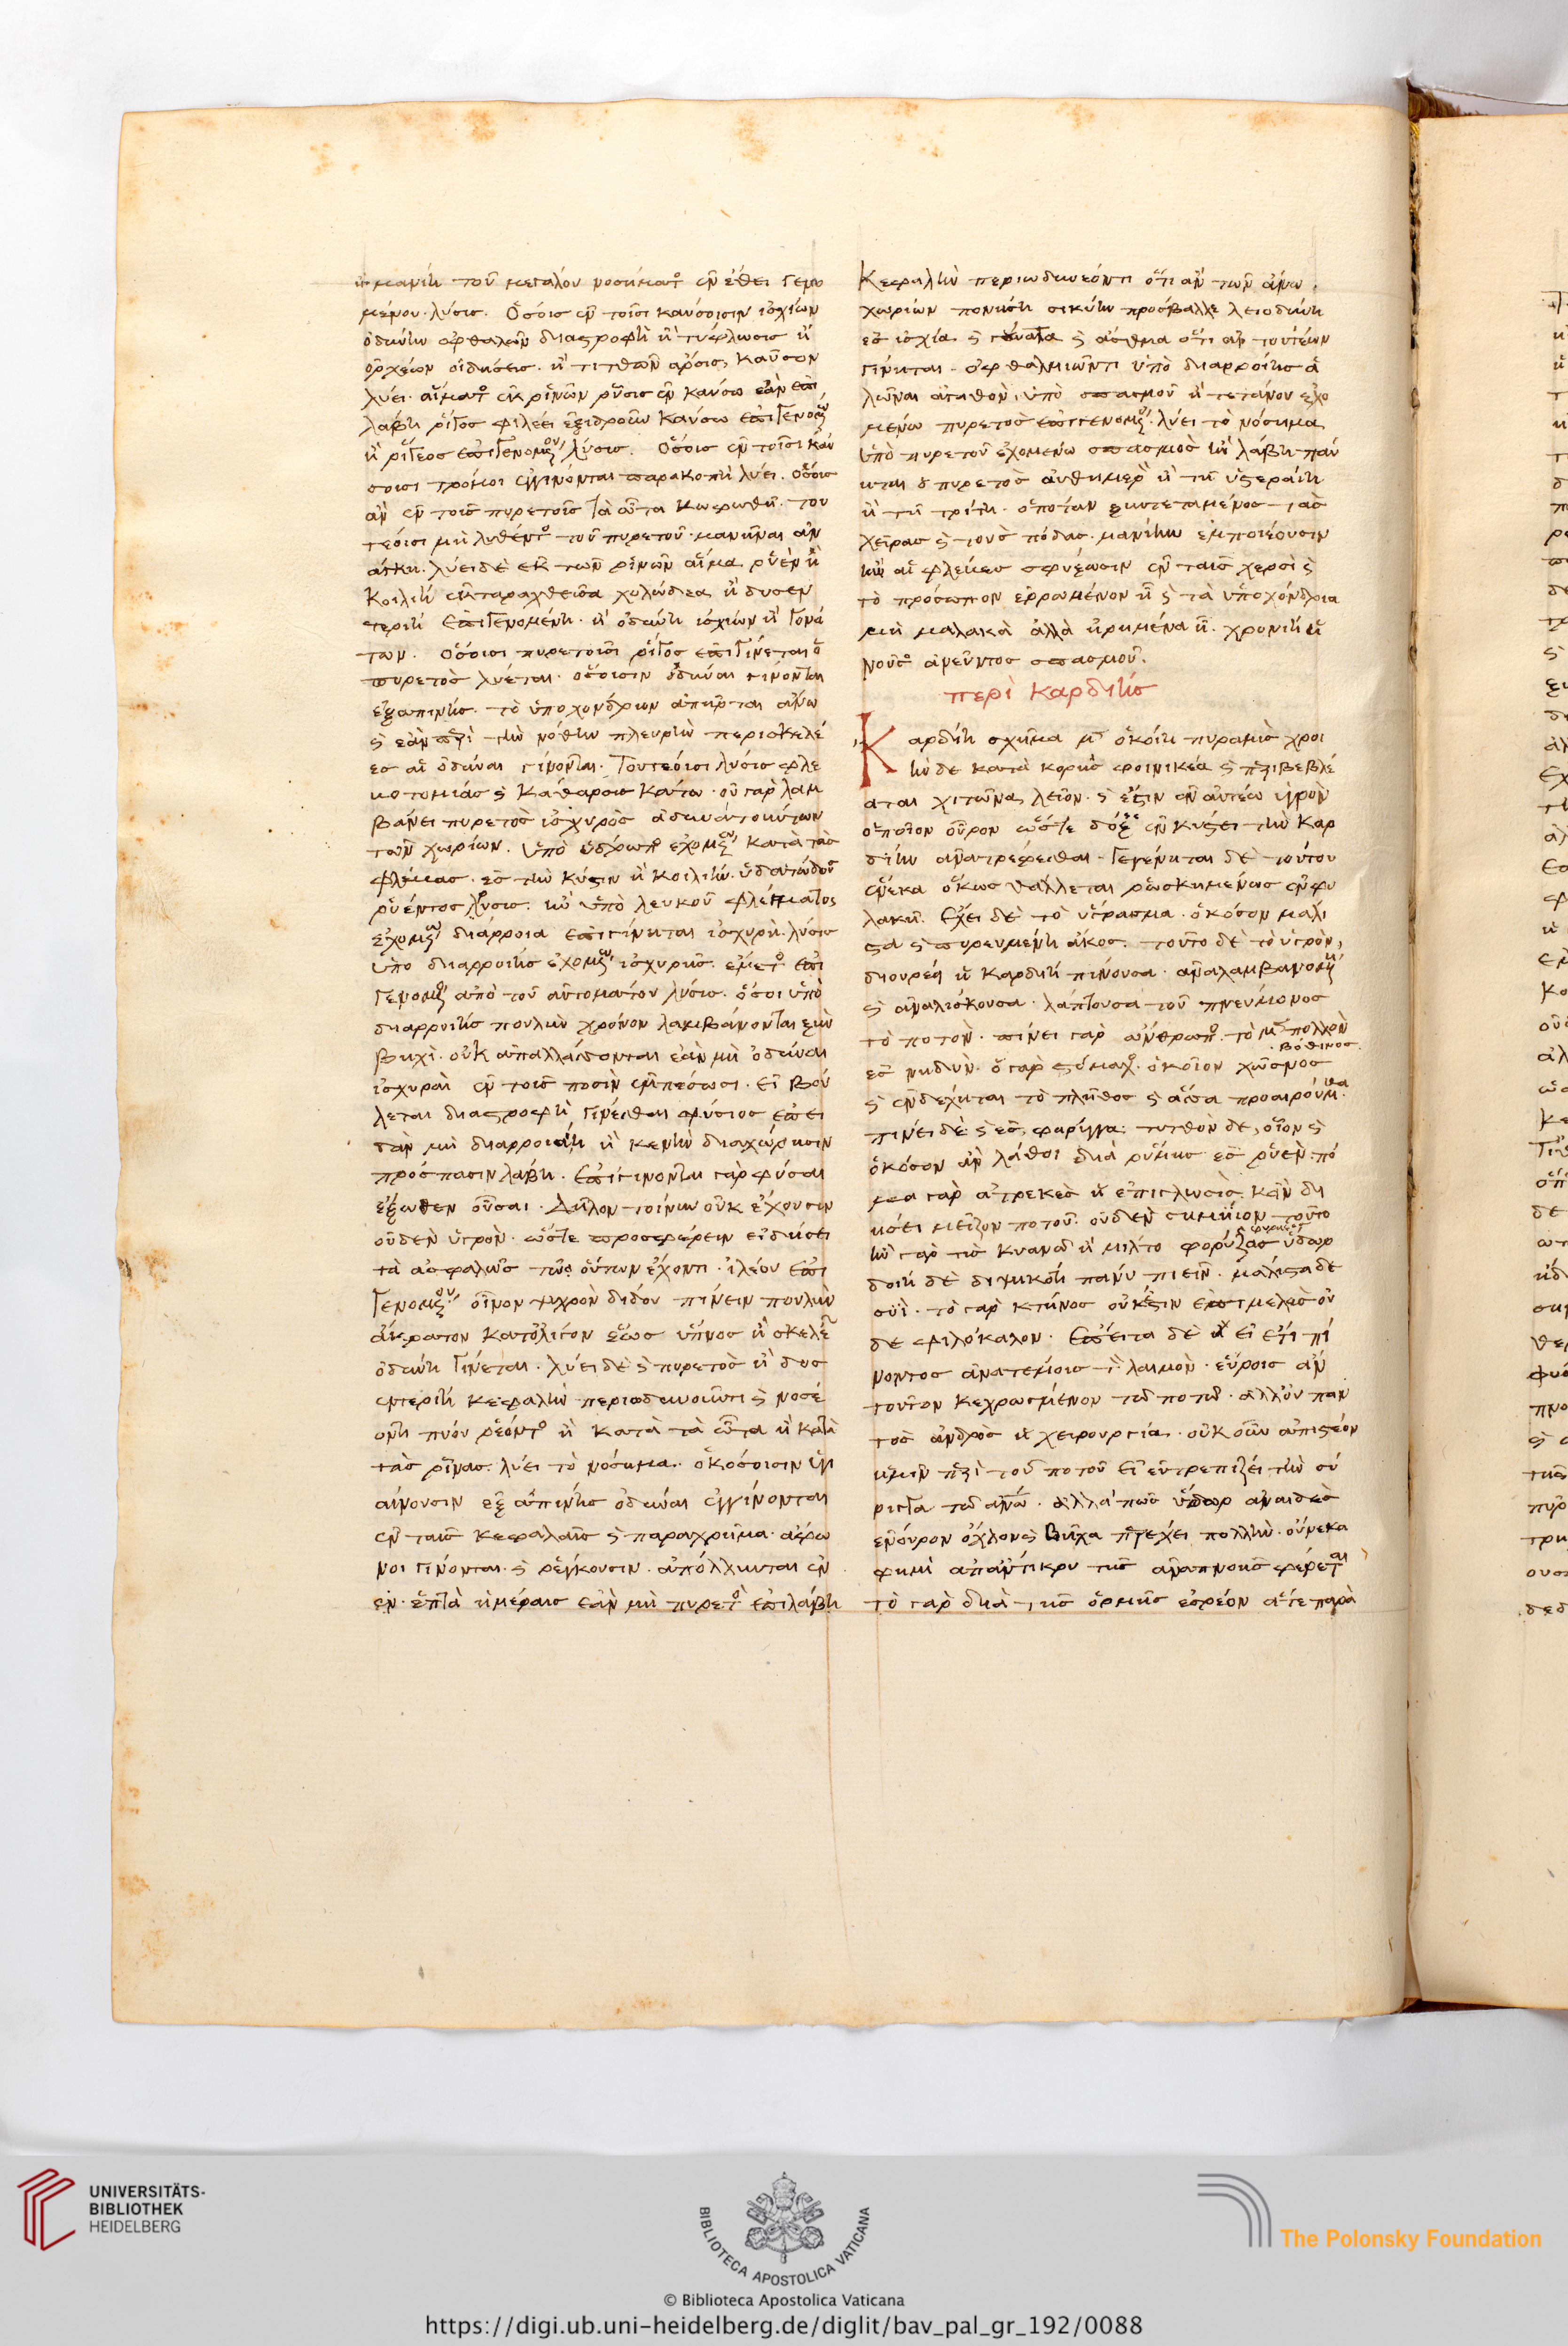 μανίη τοῦ μεγάλου νοσήματος ἐν ἔθει γενο
μένου λύσις. Ὁσοις ἐν τοῖσι καύσοισιν ἰσχίων
ὀδύνη ὀφθαλμῶν διαστροφὴ ἢ τύφλωσις ἢ
ὀρχέων οἰδήσεις. ἢ τιτθῶν ἄρσις, καῦσον
λύει. αἵματος ἐκ ῥινῶν ῥύσις ἐν καύσω ἐὰν ἐπι
λάβη ῥῖγος φιλέει ἐξιδροῦν καύσω ἐπιγενομένου
ἢ ῥίγεος ἐπιγενομένου λύσις. Ὁσοις ἐν τοῖσι καύ
σοισι τρόμοι ἐγγίνονται παρακοπὴ λύει. ὅσοις
ἂν ἐν τοῖς πυρετοῖς τὰ ὦτα κωφωθῆ. του
τέοισι μὴ λυθέντος τοῦ πυρετοῦ μανῆναι ἀν
άγκη. λύει δὲ ἐκ τῶν ῥινῶν αἷμα ῥυὲν ἢ
κοιλίη ἐκταραχθεῖσα χολώδεα ἢ δυσεν
τερίη ἐπιγενομένη. ἢ ὀδύνη ἰσχίων ἢ γονά
των. ὅσοισι πυρετοῖσι ῥῖγος ἐπιγίνεται ὁ
πυρετὸς λύεται. ὅσοισιν ὀδύναι γίνονται
ἐξαπίνης. τὸ ὑποχόνδριον ἀπῆρται ἄνω
καὶ ἐὰν περὶ τὴν νόθην πλευρὴν περισκελέ
ες αἱ ὀδύναι γίνονται. Τουτέοισι λύσις φλε
βοτομίας καὶ κάθαρσις κάτω. οὐ γὰρ λαμ
βάνει πυρετὸς ἰσχυρὸς ὀδυνάτων ὄντων
τῶν χωρίων. Ὑπὸ ὕδρωπος ἐχομένω κατὰ τὰς
φλέβας. ἐς τὴν κύστιν ἢ κοιλίην. ὑδατώδους
ῥυέντος λύσις. ἢν ὑπὸ λευκοῦ φλέγματος
ἐχομένω διάρροια ἐπιγίνηται ἰσχυρὴ λύσις
ὑπὸ διαρροίης ἐχομένω ἰσχυρῆς. ἔμετος ἐπι
γενόμενος ἀπὸ τοῦ αὐτομάτου λύσις. ὅσοι ὑπὸ
διαρροίης πουλὺν χρόνον λαμβάνονται ξὺν
βηχὶ. οὐκ ἀπαλλάσσονται ἐὰν μὴ ὀδύναι
ἰσχυραὶ ἐν τοῖς ποσὶν ἐμπέσωσι. εἰ βού
λεται διαστροφὴ γινέσθαι φύσιος ἐπει
δαν μὴ διαρροίη ἢ κενὴν διαχώρησιν
πρόσπασιν λάβη. ἐπιγίνονται γὰρ φύσαι
ἔξωθεν οὖσαι. Δῆλον τοίνυν οὐκ ἔχουσιν
οὐδὲν ὑγρὸν. ὥστε προσφέρειν εἰδήσει
τὰ ἀσφαλέως τῶ οὕτων ἔχοντι. ἰλέου ἐπι
γενομένου οἶνον ψυχρὸν διδου πίνειν πουλὺν
ἄκρατον κατολίγον ἕως ὕπνος ἢ σκελέων
ὀδύνη γίνεται. λύει δὲ καὶ πυρετὸς ἢ δυσ
εντερίη κεφαλὴν περιωδυνοῦντι καὶ νοσέ
οντι πύου ῥέοντος ἢ κατὰ τὰ ὦτα ἢ κατὰ
τὰς ῥῖνας λύει τὸ νόσημα. ὁκόσοισιν ὑγι
αίνουσιν ἐξαπίνης ὀδύναι ἐγγίνονται
ἐν ταῖς κεφαλαῖς καὶ παραχρῆμα ἄφω
νοι γίνονται καὶ ῥέγκουσιν. ἀπόλλυνται ἐν
ἑπτὰ ἡμέραις ἐὰν μὴ πυρετὸς ἐπιλάβη
Κεφαλὴν περιωδυνέοντι ὅτι ἂν τῶν ἄνω
χωρίων πονήση σικύην πρόσβαλλε λείο δύνη
ἐς ἰσχία καὶ γούνατα καὶ ἄσθμα ὅτι ἂν τουτέων
γίνηται. ὀφθαλμιῶντι ὑπὸ διαρροίης ἁ
λῶναι ἀγαθὸν. ὑπὸ σπασμοῦ ἢ τετάνου ἐχο
μένω πυρετὸς ἐπιγενόμενος λύει τὸ νόσημα
ὑπὸ πυρετοῦ ἐχομένω σπασμὸς ἢν λάβη παύ
ηται ὁ πυρετὸς αὐθημερὸν ἢ τῆ ὑστεραίη
ἢ τῆ τρίτη. ὁπόταν ξυντεταμένος τὰς
χεῖρας καὶ τοὺς πόδας. μανίην ἐμποιέουσιν
ἢν αἱ φλέβες σφύξωσιν ἐν ταῖς χερσὶ καὶ
τὸ πρόσωπον ἐρρωμένον ἢ καὶ τὰ ὑποχόνδρια
μὴ μαλακὰ ἀλλὰ ἠρμένα ἢ. χρονίη ἡ
νοῦσος ἄνεϋντος σπασμοῦ.
περὶ καρδίης
Καρδίη σχῆμα μὲν ὁκοίη πυραμὶς χροι
ὴν δὲ κατὰ κορὴς φοινικέα καὶ περιβεβλέ
αται χιτῶνα λεῖον. καὶ ἔστιν ἐν αὐτέω ὑγρὸν
ὁποῖον οὖρον ὥστε δόξεις ἐν κύστει τὴν καρ
δίην ἀναστρέφεσθαι. Γεγένηται δὲ τούτου
ἕνεκα ὅκως ἅλλεται ῥωσκημένως ἐν φυ
λακῆ. ἔχει δὲ τὸ ὕγρασμα. ὁκόσον μάλι
στα καὶ πυρευμένη ἄκος. τοῦτο δὲ τὸ ὑγρὸν,
διουρέη ἡ καρδίη πίνουσα. ἀναλαμβανομένη
καὶ ἀναλίσκουσα. λάπτουσα τοῦ πνεύμονος
τὸ ποτὸν. πίνει γὰρ ὥνθρωπος. τὸ μὲν πολλὸν
βόθυνος
ἐς νηδὺν. ὁ γὰρ στόμαχος ὁκοῖον χῶσνος
καὶ ἐνδέχηται τὸ πλῆθος καὶ ἅσσα προαιρούμεθα
πίνει δὲ καὶ ἐς φάρυγγα. τυτθὸν δὲ, οἷον καὶ
ὁκόσον ἂν λάθοι διὰ ῥύμης ἐς ῥυὲν πό
μα γὰρ ἀτρεκὲς ἡ ἐπιγλωσὶς. κἂν δι
ήσει μεῖζον ποτοῦ. οὐδὲν σημήιον τοῦτο
φυρήσας
ἢν γάρ τις κυανῶ ἢ μίλτο φορύξας ὕδωρ
δοίη δὲ διψηκότι πάνυ πιεῖν. μάλιστα δὲ
συϊ. τὸ γὰρ κτῆνος οὐκ ἔστιν ἐπιμελὲς οὐ
δὲ φιλόκαλον. ἐπείτα δὲ ἢ εἰ ἔτι πί
νοντος ἀνατέμοις τὸν λαιμὸν. εὕροις ἂν
τοῦτον κεχρωσμένον τῶ ποτῶ. ἀλλ' οὐ παν
τὸς ἀνδρὸς ἡ χειρουργία. οὐκ οὖν ἀπιστέον
ἡμῖν περὶ τοῦ ποτοῦ εἰ εὐτρεπίζει τὴν σύ
ριγγα τῶ ἀνθρώπω. ἀλλὰ πῶς ὕδωρ ἀναιδὲς
ἐνοῦρον ὄχλον καὶ βῆχα παρέχει πολλὴν. οὕνεκα
φημὶ ἀπάντικρυ τῆς ἀναπνοῆς φέρεται
τὸ γὰρ διὰ τῆς ὁρμῆς ἐσρέον ἅτε παρὰ
UNIVERSITÄTS-
BIBLIOTHEK
HEIDELBERG
BIBLIOTECA APOSTOLICA VATICANA
The Polonsky Foundation
© Biblioteca Apostolica Vaticana
https://digi.ub.uni-heidelberg.de/diglit/bav_pal_gr_192/0088